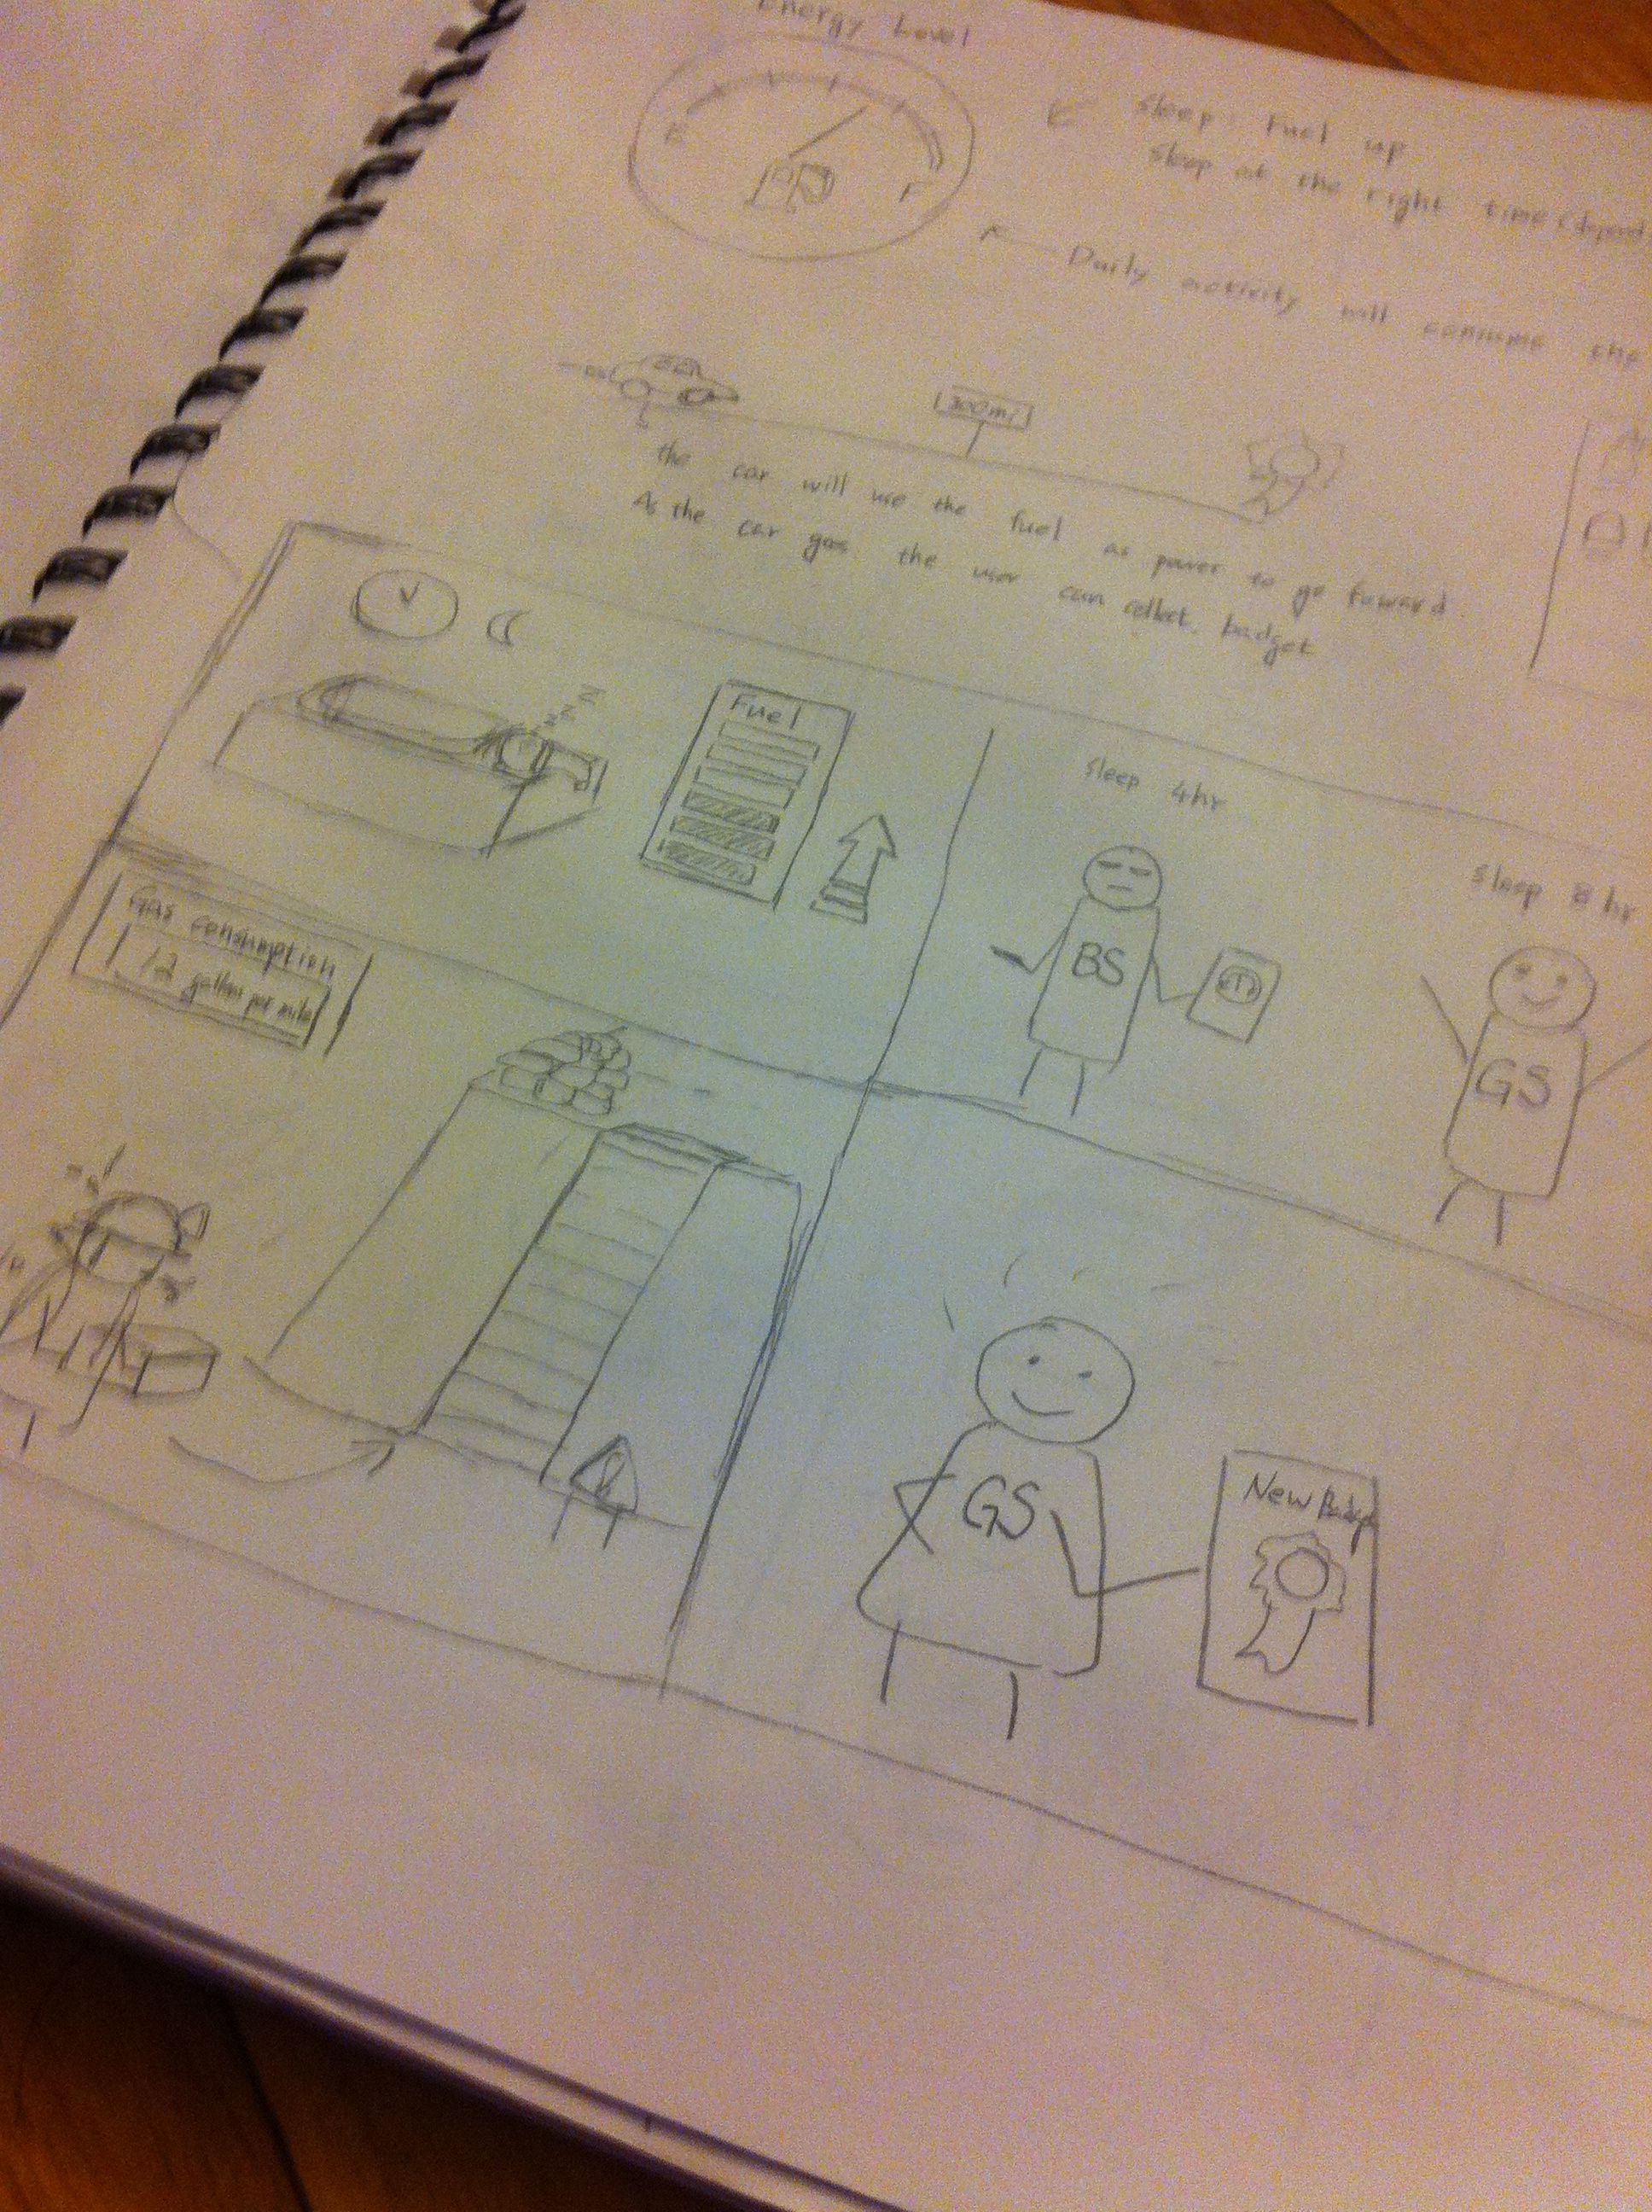 Energy Level
E
F
Sleep: Fuel up
Sleep at the right time (depend
Daily activity will consume the
300mi
the car will use the fuel as power to go foward.
As the car gos. the user can collect. badget
zzz
Fuel
Sleep 4hr
BS
Sleep 8 hr
GS
Gas consumption
12 gallon per mile
GS
New Badge